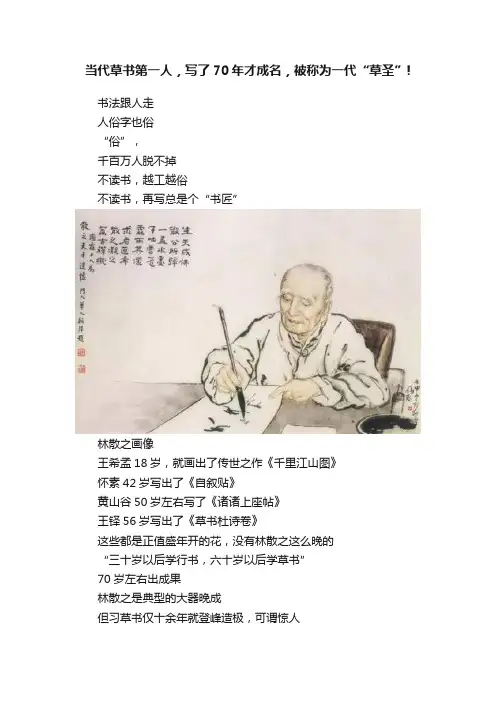 当代草书第一人，写了70年才成名，被称为一代“草圣”！
书法跟人走
人俗字也俗
“俗”，
千百万人脱不掉
不读书，越工越俗
不读书，再写总是个“书匠”
生天成佛
散公所歸
一盂水墨
林散之画像
王希孟18岁，就画出了传世之作《千里江山图》
怀素42岁写出了《自叙贴》
黄山谷50岁左右写了《诸诸上座帖》
王铎56岁写出了《草书杜诗卷》
这些都是正值盛年开的花，没有林散之这么晚的
“三十岁以后学行书，六十岁以后学草书”
70岁左右出成果
林散之是典型的大器晚成
但习草书仅十余年就登峰造极，可谓惊人